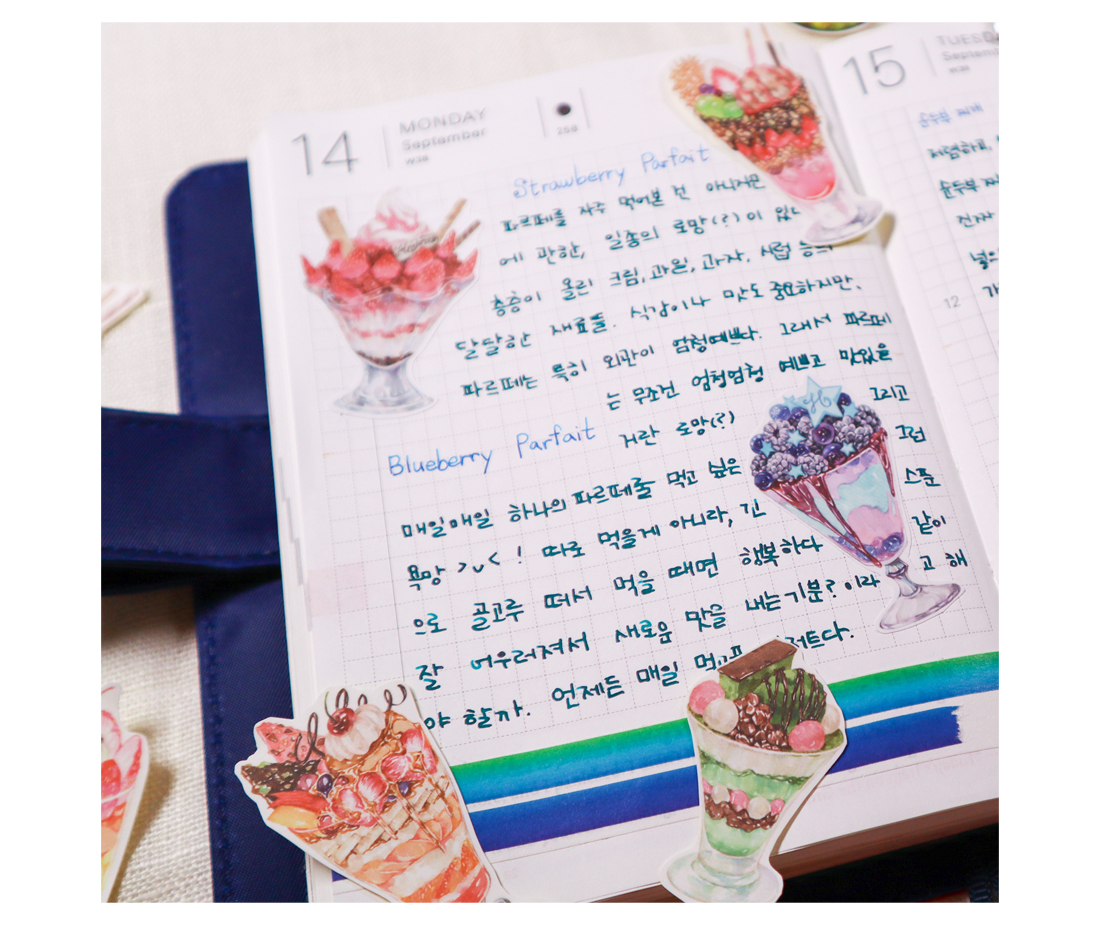 14
MONDAY
September
W38
258
Strawberry Parfait
파르페를 자주 먹어본 건 아니지만
에 관한, 일종의 로망(?)이 있
층층이 올린 크림, 과일, 과자, 시럽 등의
달달한 재료들. 식감이나 맛도 중요하지만,
파르페는 특히 외관이 엄청예쁘다. 그래서 파르페
는 무조건 엄청엄청 예쁘고 맛있을
Blueberry Parfait 거란 로망(?) 그리고
매일매일 하나의 파르페를 먹고 싶은 그런
욕망 >ᴗ< ! 따로 먹을게 아니라, 긴 스푼
으로 골고루 떠서 먹을 때면 행복하다 같이
잘 어우러져서 새로운 맛을 내는기분? 이라 고 해
야 할까. 언제든 매일 먹고 저트다.
15
TUESDA
Septem
W38
순두부 찌개
저렴하고,
순두부 찌
진짜
넣으
12 가